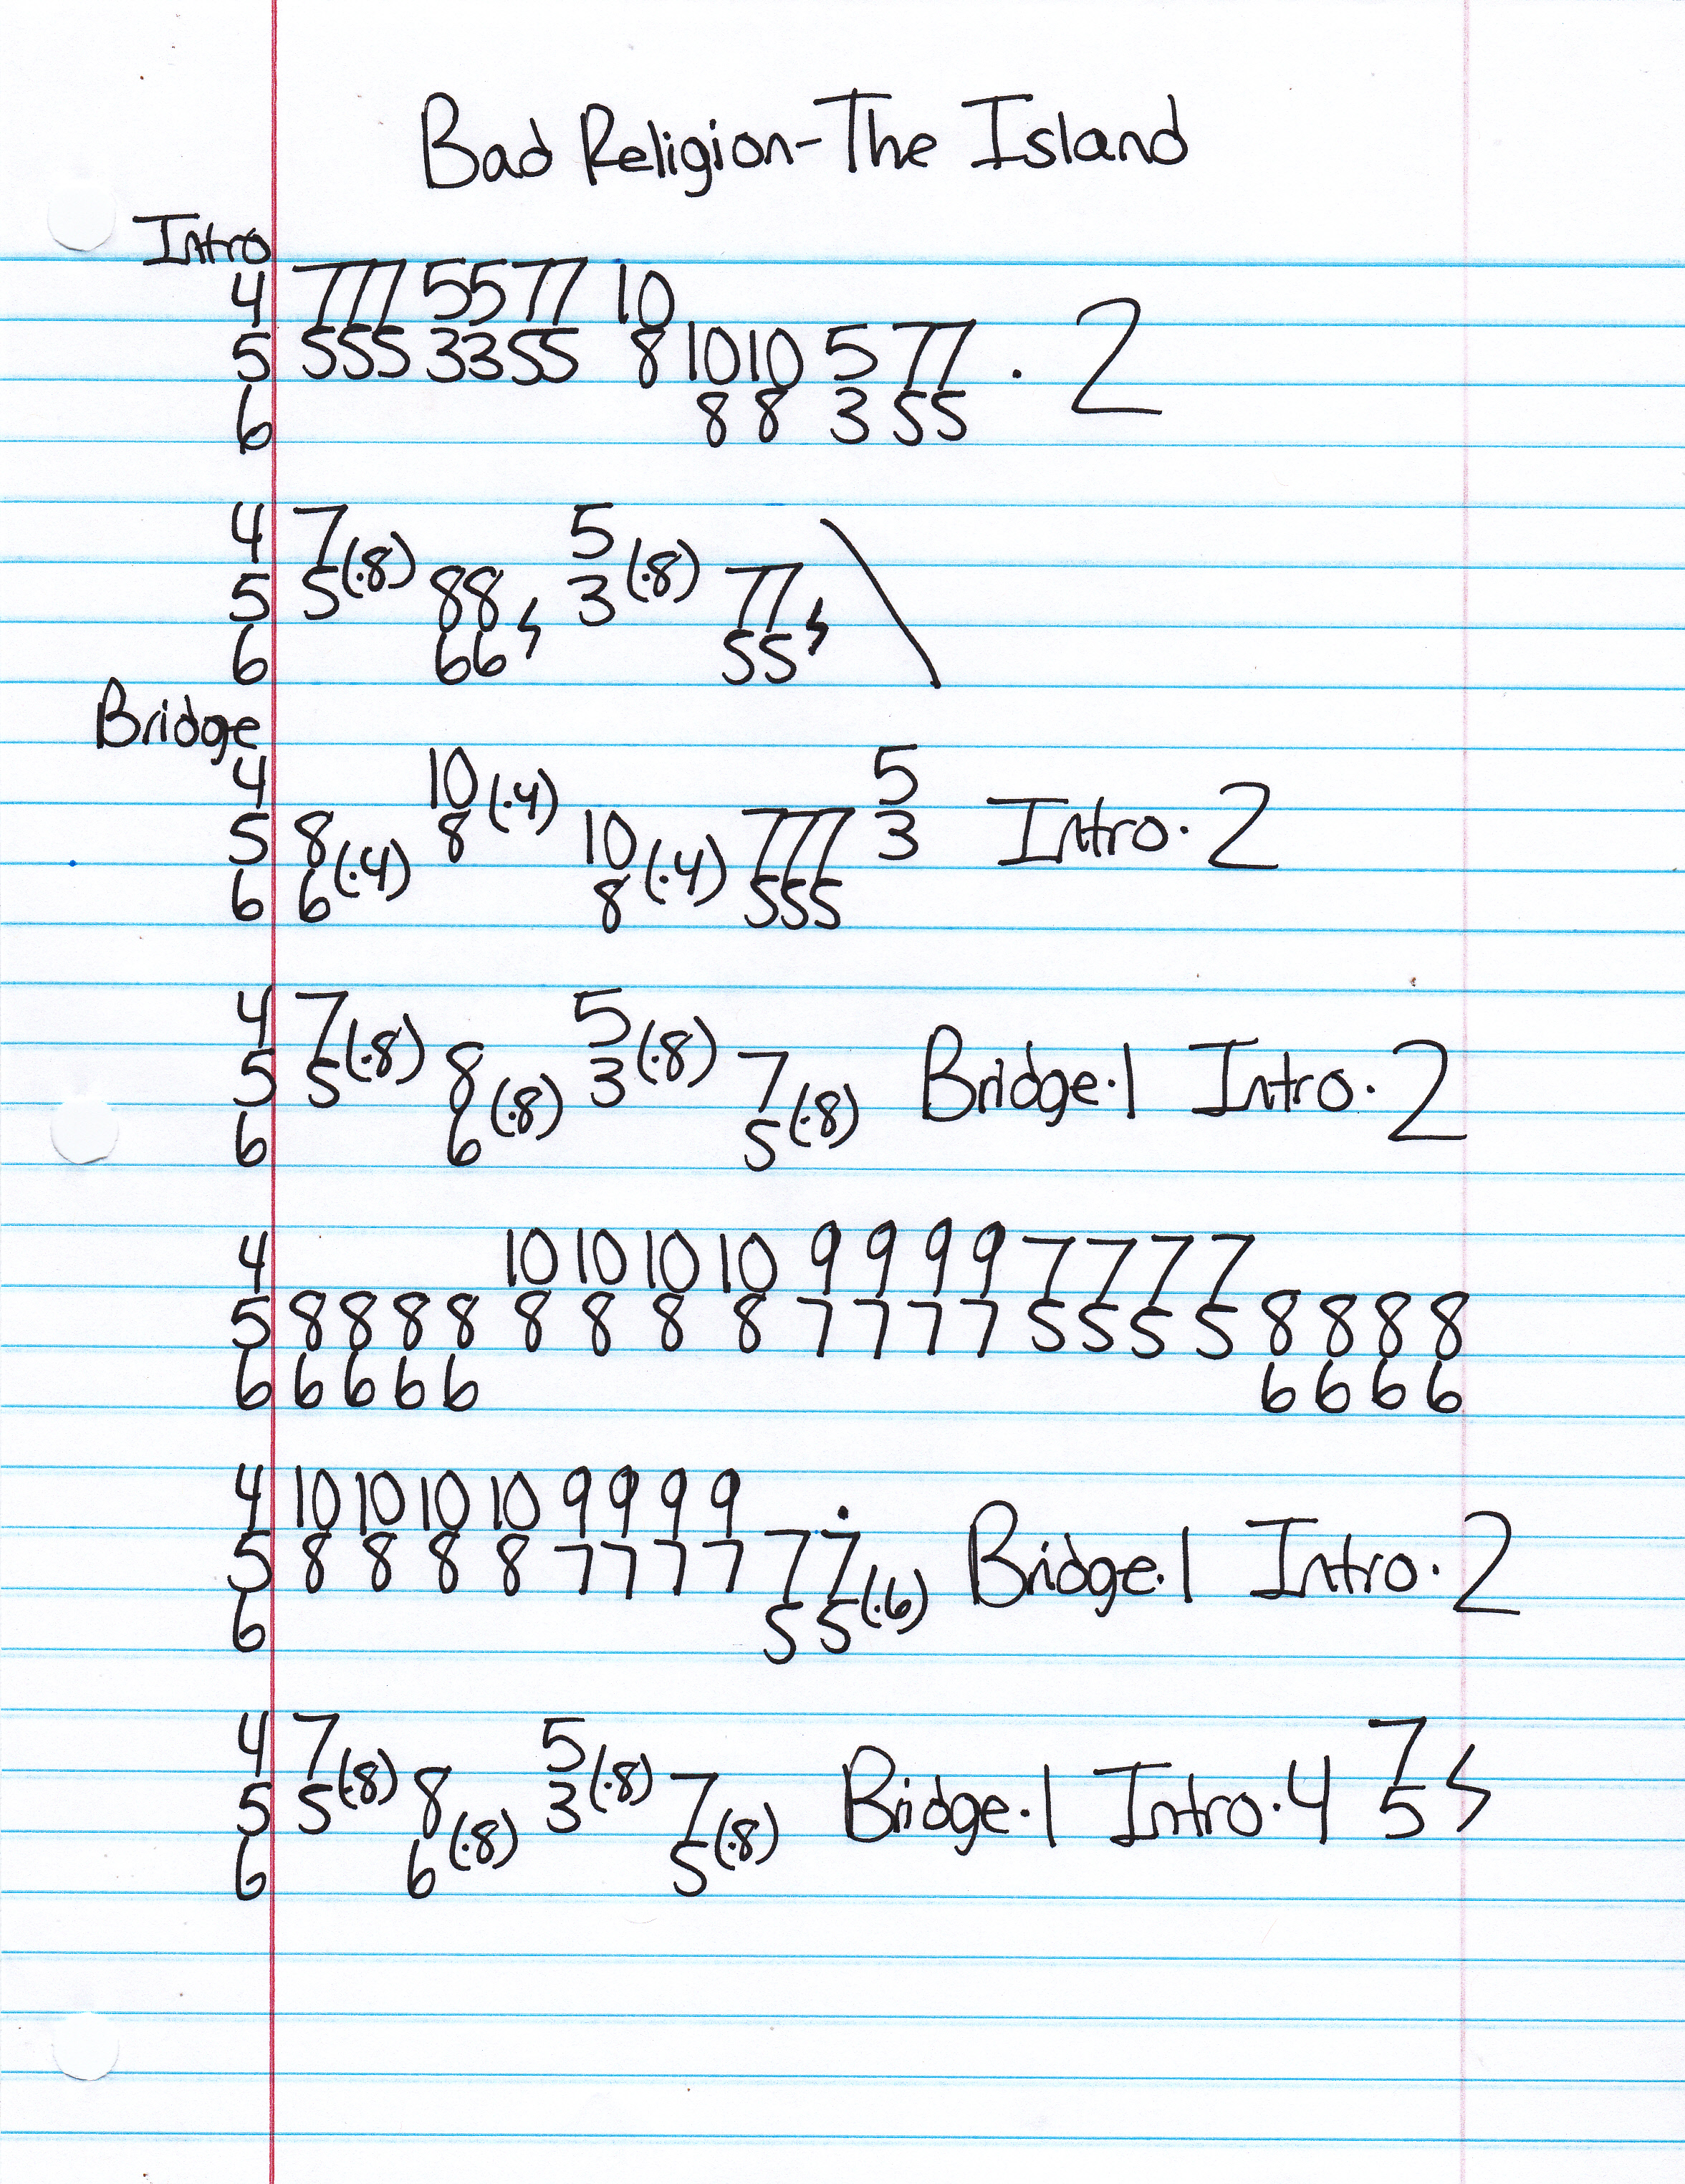 Bad Religion-The Island
Intro
4 777 55 77 10
5 555 33 55 8 10 10 5 77 · 2
6 8 8 3 55
4 7 5
5 5 (·8) 88 3 (·8) 77
6 66 55
Bridge
4 10 (·4) 5
5 8 (·4) 8 10 (·4) 777 3 Intro · 2
6 6 8 555
4 7 5
5 5 (·8) 8 (·8) 3 (·8) 7 (·8) Bridge · 1 Intro · 2
6 6 5
4 10 10 10 10 9 9 9 9 7 7 7 7
5 8 8 8 8 8 8 8 8 7 7 7 7 5 5 5 5 8 8 8 8
6 6 6 6 6 6 6 6 6
4 10 10 10 10 9 9 9 9
5 8 8 8 8 7 7 7 7 7 7 (·6) Bridge · 1 Intro · 2
6 5 5
4 7 5 7
5 5 (·8) 8 (·8) 3 (·8) 7 (·8) Bridge · 1 Intro · 4 5
6 6 5